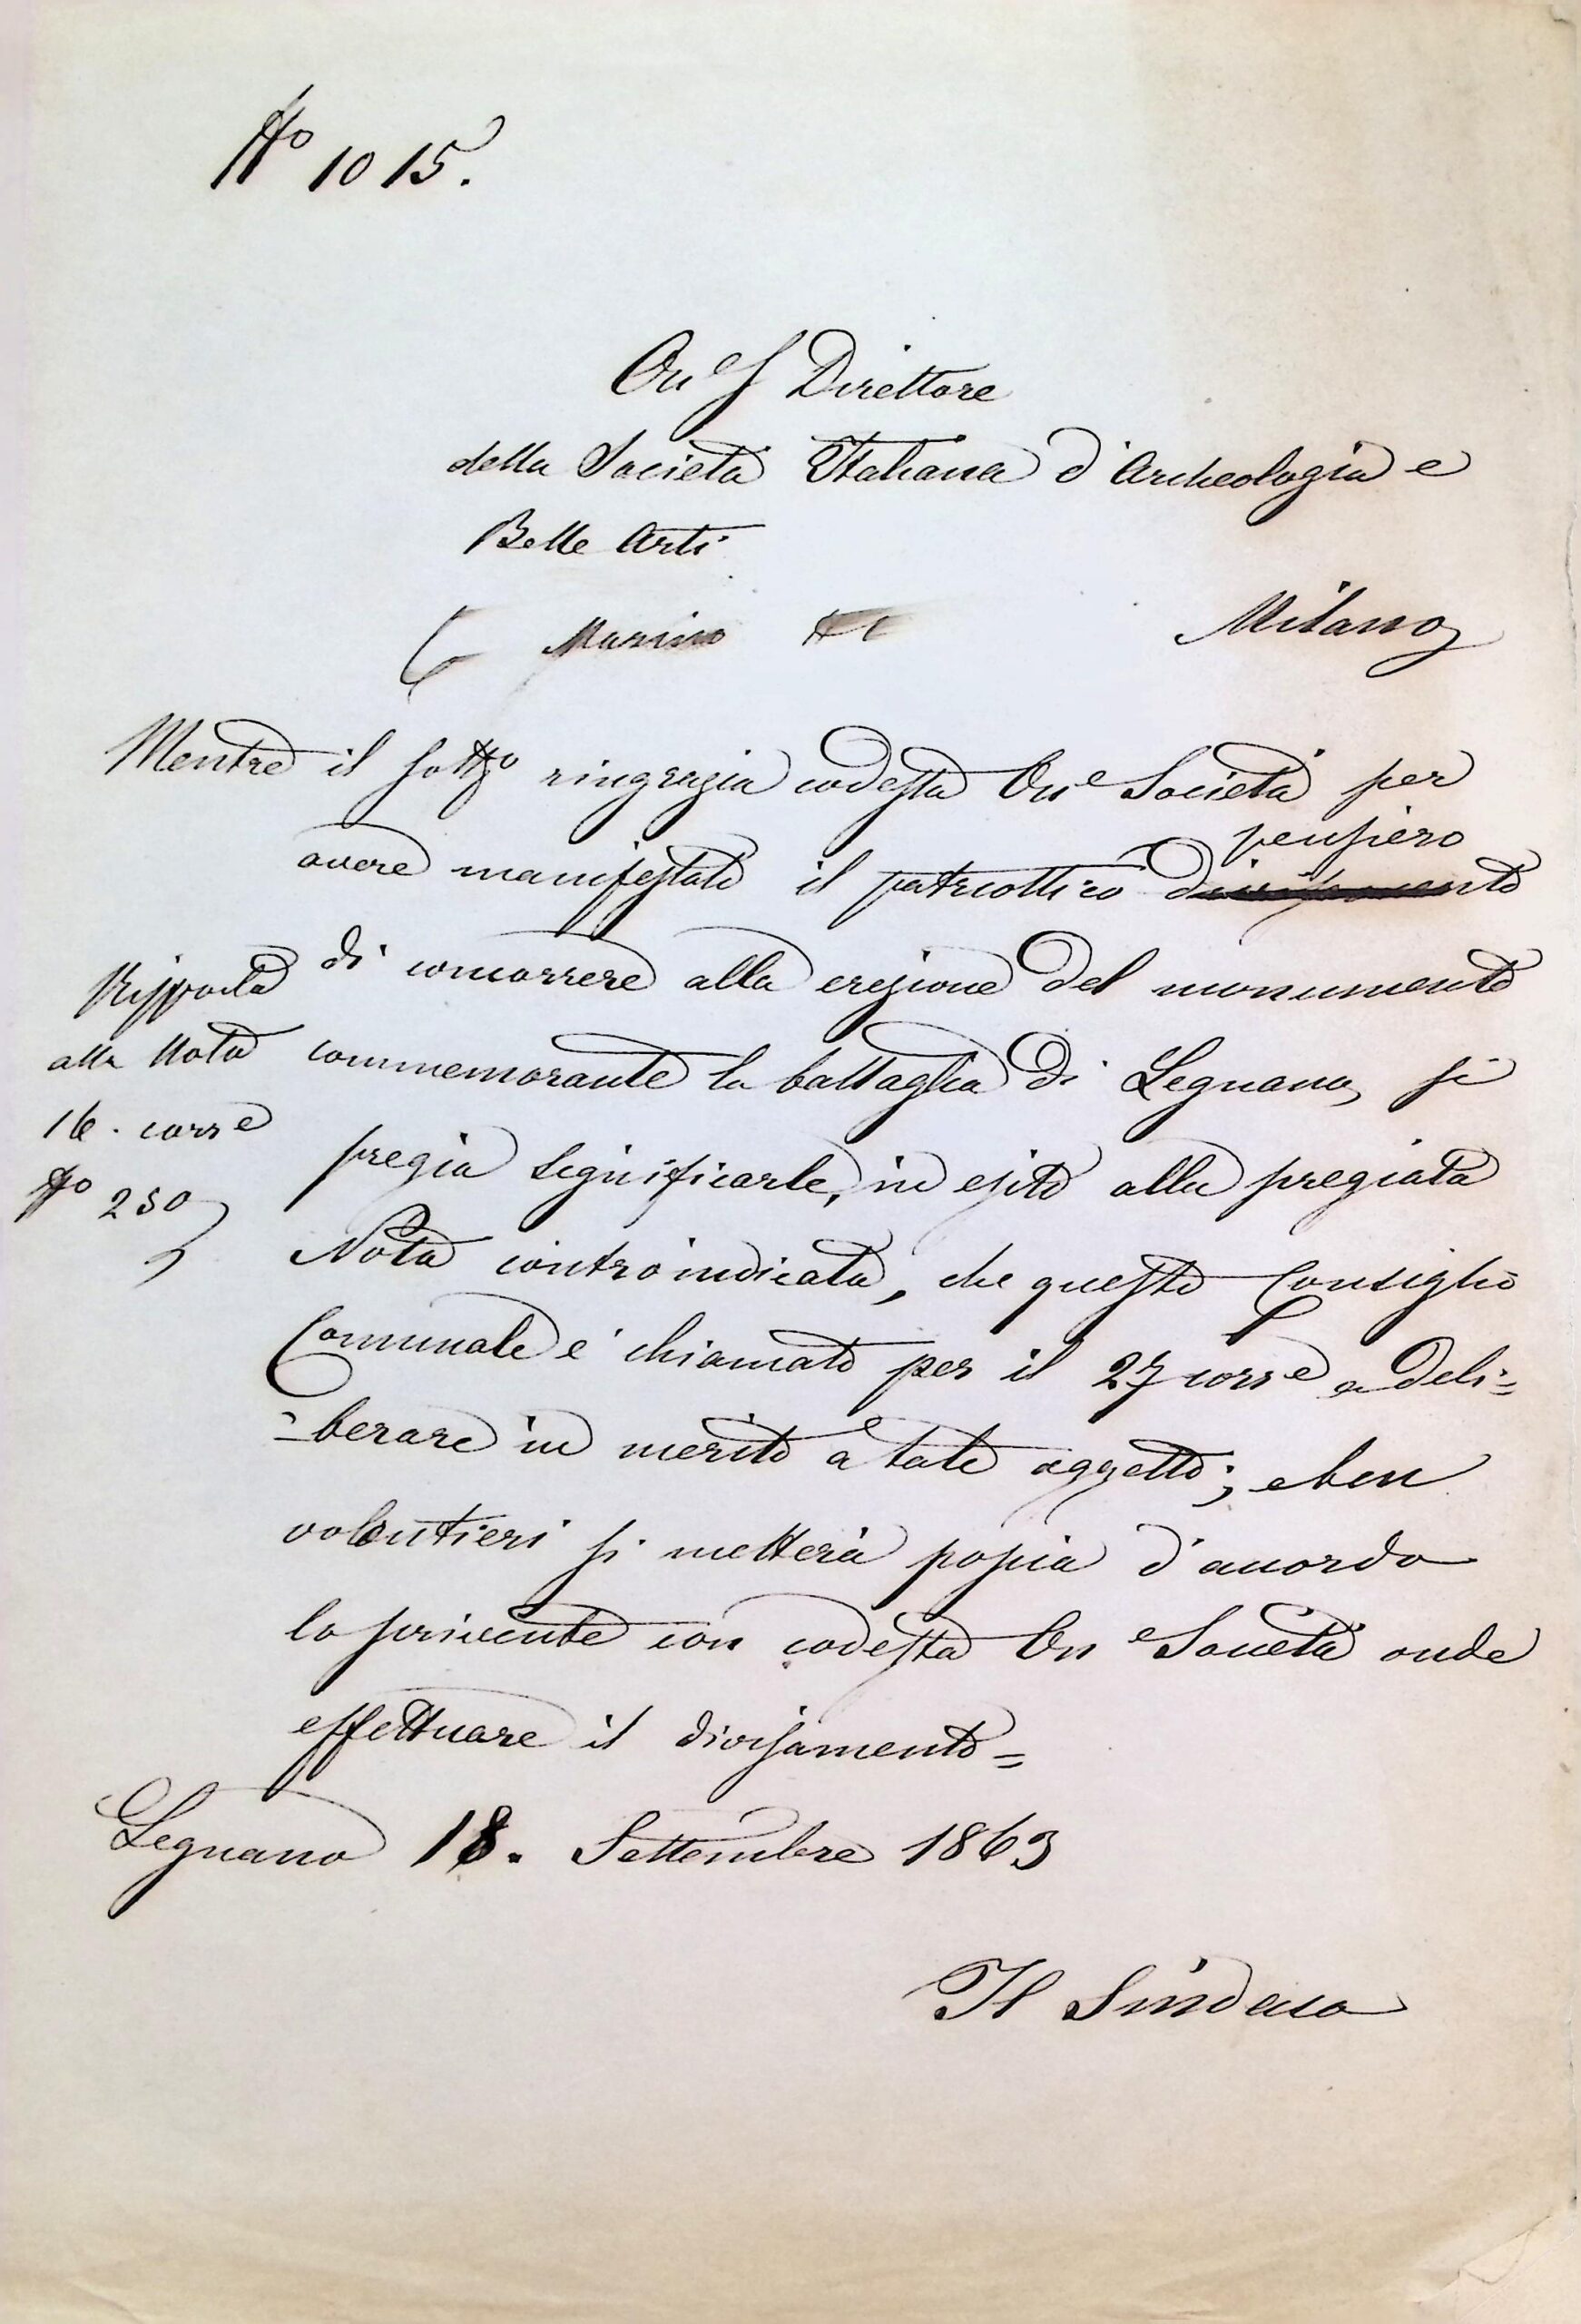 No 1015.
On.e S Direttore
della Società Italiana d'Archeologia e
Belle Arti
Milano
Mentre il sottoo ringrazia codesta One Società per
pensiero
avere manifestato il patriottico divisamento
di concorrere alla erezione del monumento
commemorante la battaglia di Legnano, si
pregia significarle, in esito alla pregiata
Nota controindicata, che questo Consiglio
Comunale è chiamato per il 27 corre a deli=
=berare in merito a tale oggetto; e ben
volentieri si metterà poscia d'accordo
lo scrivente con codesta One Società onde
effettuare il divisamento=
Risposta
alla Nota
16. corre
No 250
Legnano 18. Settembre 1863
Il Sindaco